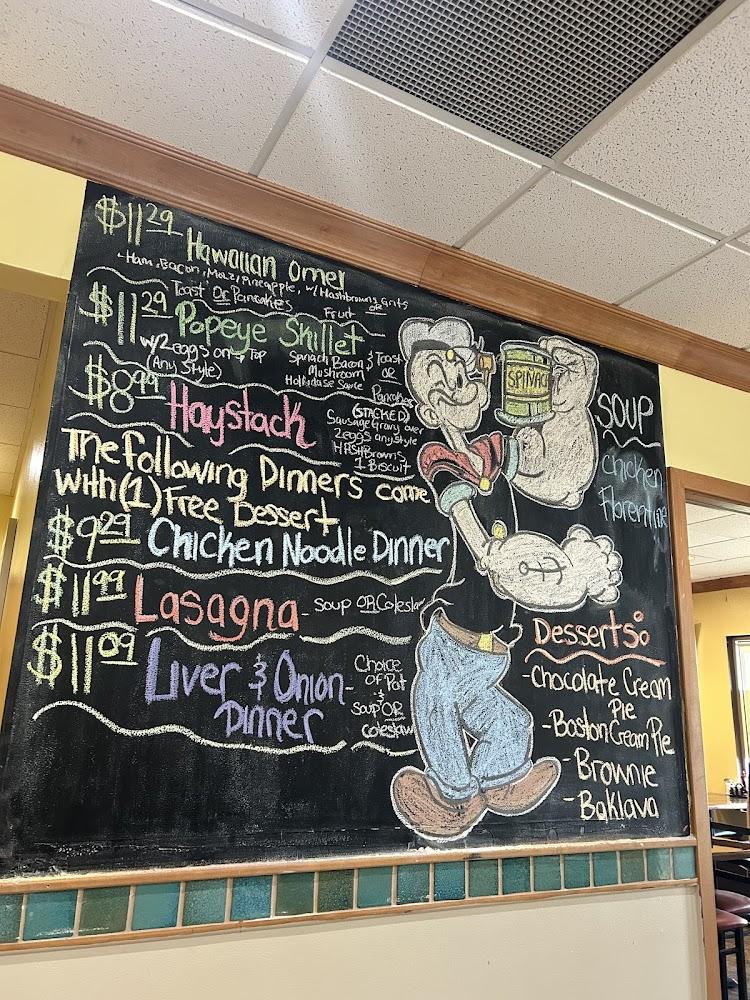 $11.29 Hawaiian Omel
-Ham, Bacon, Moz, Pineapple, w/ Hashbrowns, Grits
Toast Or Pancakes Fruit
$11.29 Popeye Skillet
w/2 eggs on Top
(Any Style)
Spinach Bacon & Toast
Mushroom OR
Hollandase Sauce Pancakes
$8.99 Haystack
(STACKED)
Sausage Gravy over
2 eggs any style
HASHBrowns
1 Biscuit
The following Dinners come
with (1) Free Dessert
$9.29 Chicken Noodle Dinner
$11.99 Lasagna - soup OR Coleslaw
$11.09 Liver & Onion -
Dinner
Choice
OF Pot
&
Soup OR
Coleslaw
SPINAC
SOUP
Chicken
Florentine
Desserts:
-Chocolate Cream
Pie
-Boston Cream Pie
-Brownie
-Baklava